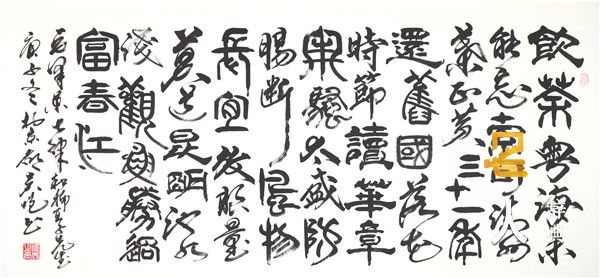 飲茶粤海未
能忘索句渝州
葉正黄三十一年
還舊國落花
時節讀華章
牢騷太盛防
腸斷風物
長宜放眼量
莫道昆明池水
淺觀魚勝過
富春江
毛澤東七律和柳亞子先生
庚子冬於京